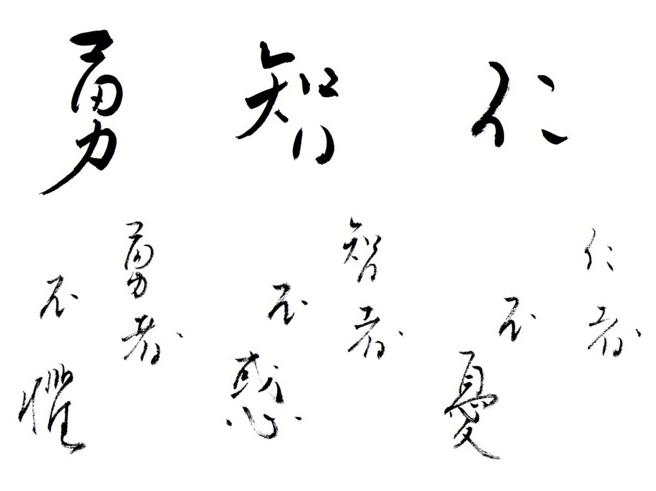 仁
仁者
不憂
智
智者
不惑
勇
勇者
不懼